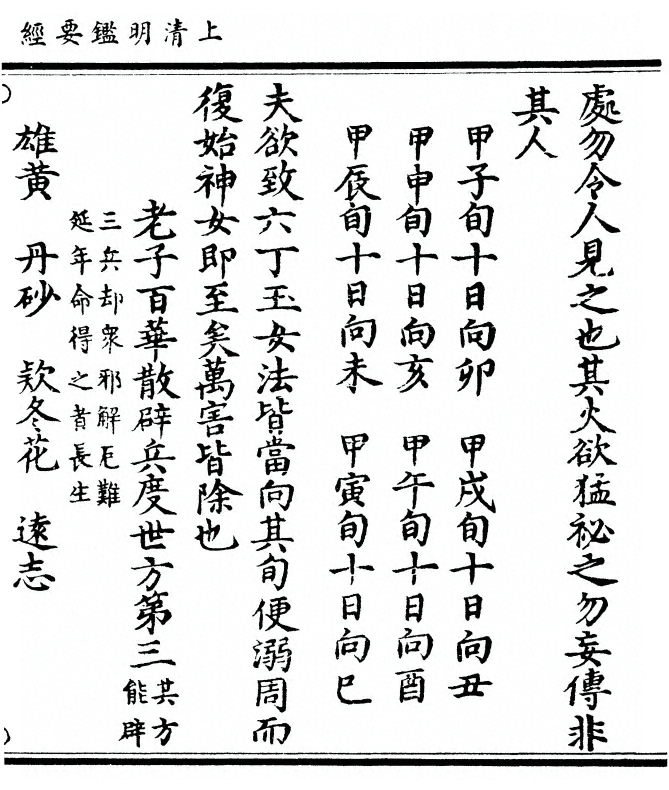 上清明鑑要經
處勿令人見之也其火欲猛祕之勿妄傳非
其人
甲子旬十日向卯 甲戌旬十日向丑
甲申旬十日向亥 甲午旬十日向酉
甲辰旬十日向未 甲寅旬十日向巳
夫欲致六丁玉女法皆當向其旬便溺周而
復始神女即至矣萬害皆除也
老子百華散辟兵度世方第三 其方能辟
三兵却衆邪解厄難
延年命得之者長生
雄黃 丹砂 欵冬花 遠志